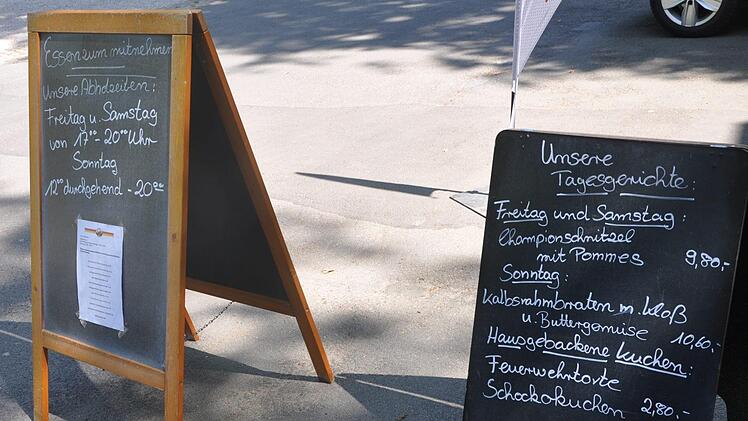 Essen zum mitnehmen
Unsere Abholzeiten:
Freitag u. Samstag
von 17⁰⁰ - 20⁰⁰ Uhr
Sonntag
12⁰⁰ durchgehend - 20⁰⁰
Unsere
Tagesgerichte:
Freitag und Samstag:
Championschnitzel
mit Pommes 9,80,-
Sonntag:
Kalbsrahmbraten m. Kloß
u. Buttergemüse 10,60,-
Hausgebackene Kuchen:
Feuerwehrtorte
Schockokuchen 2,80,-